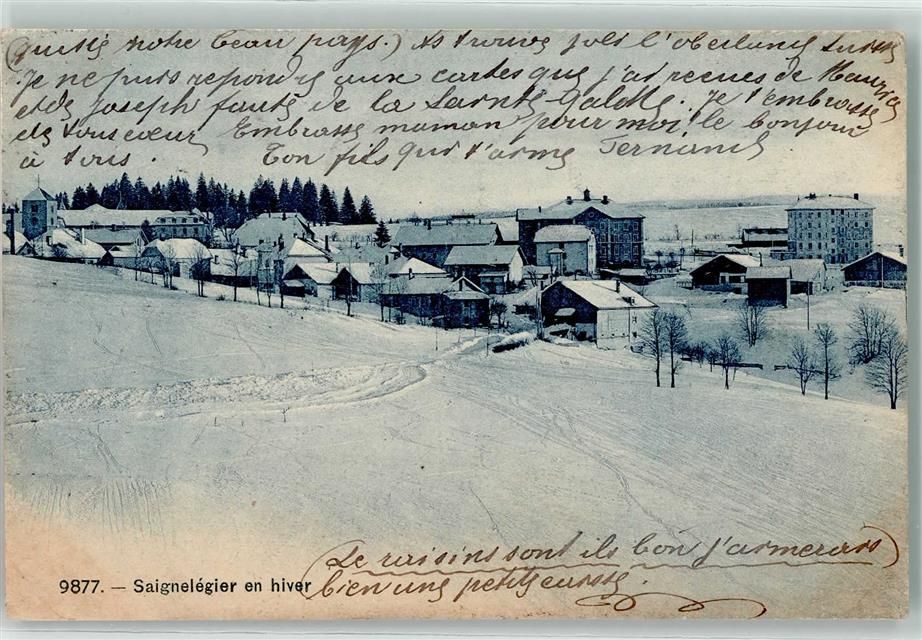 (quitté notre beau pays.) As trouvé joli l'oberland Suisse
Je ne puis repondre aux cartes que j'ai recues de Maurice
et de Joseph faute de la Sainte Galette. Je t'embrasse
de tous cœur Embrasse maman pour moi. le bonjour
à tous. Ton fils qui t'aime Fernand
(Le raisins sont ils bon j'aimerais)
bien une petite caisse.
9877. — Saignelégier en hiver